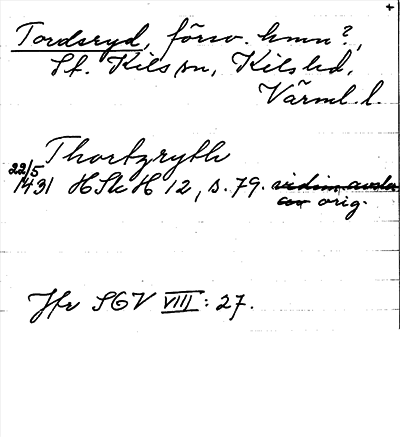 +
Tordsryd, försv. hmn?,
St. Kils sn, Kils hd,
Värml. l.
Thortzryth
22/5
1431 HSH 12, s. 79. vidim. avskr
av orig.
Jfr SOV VIII: 27.